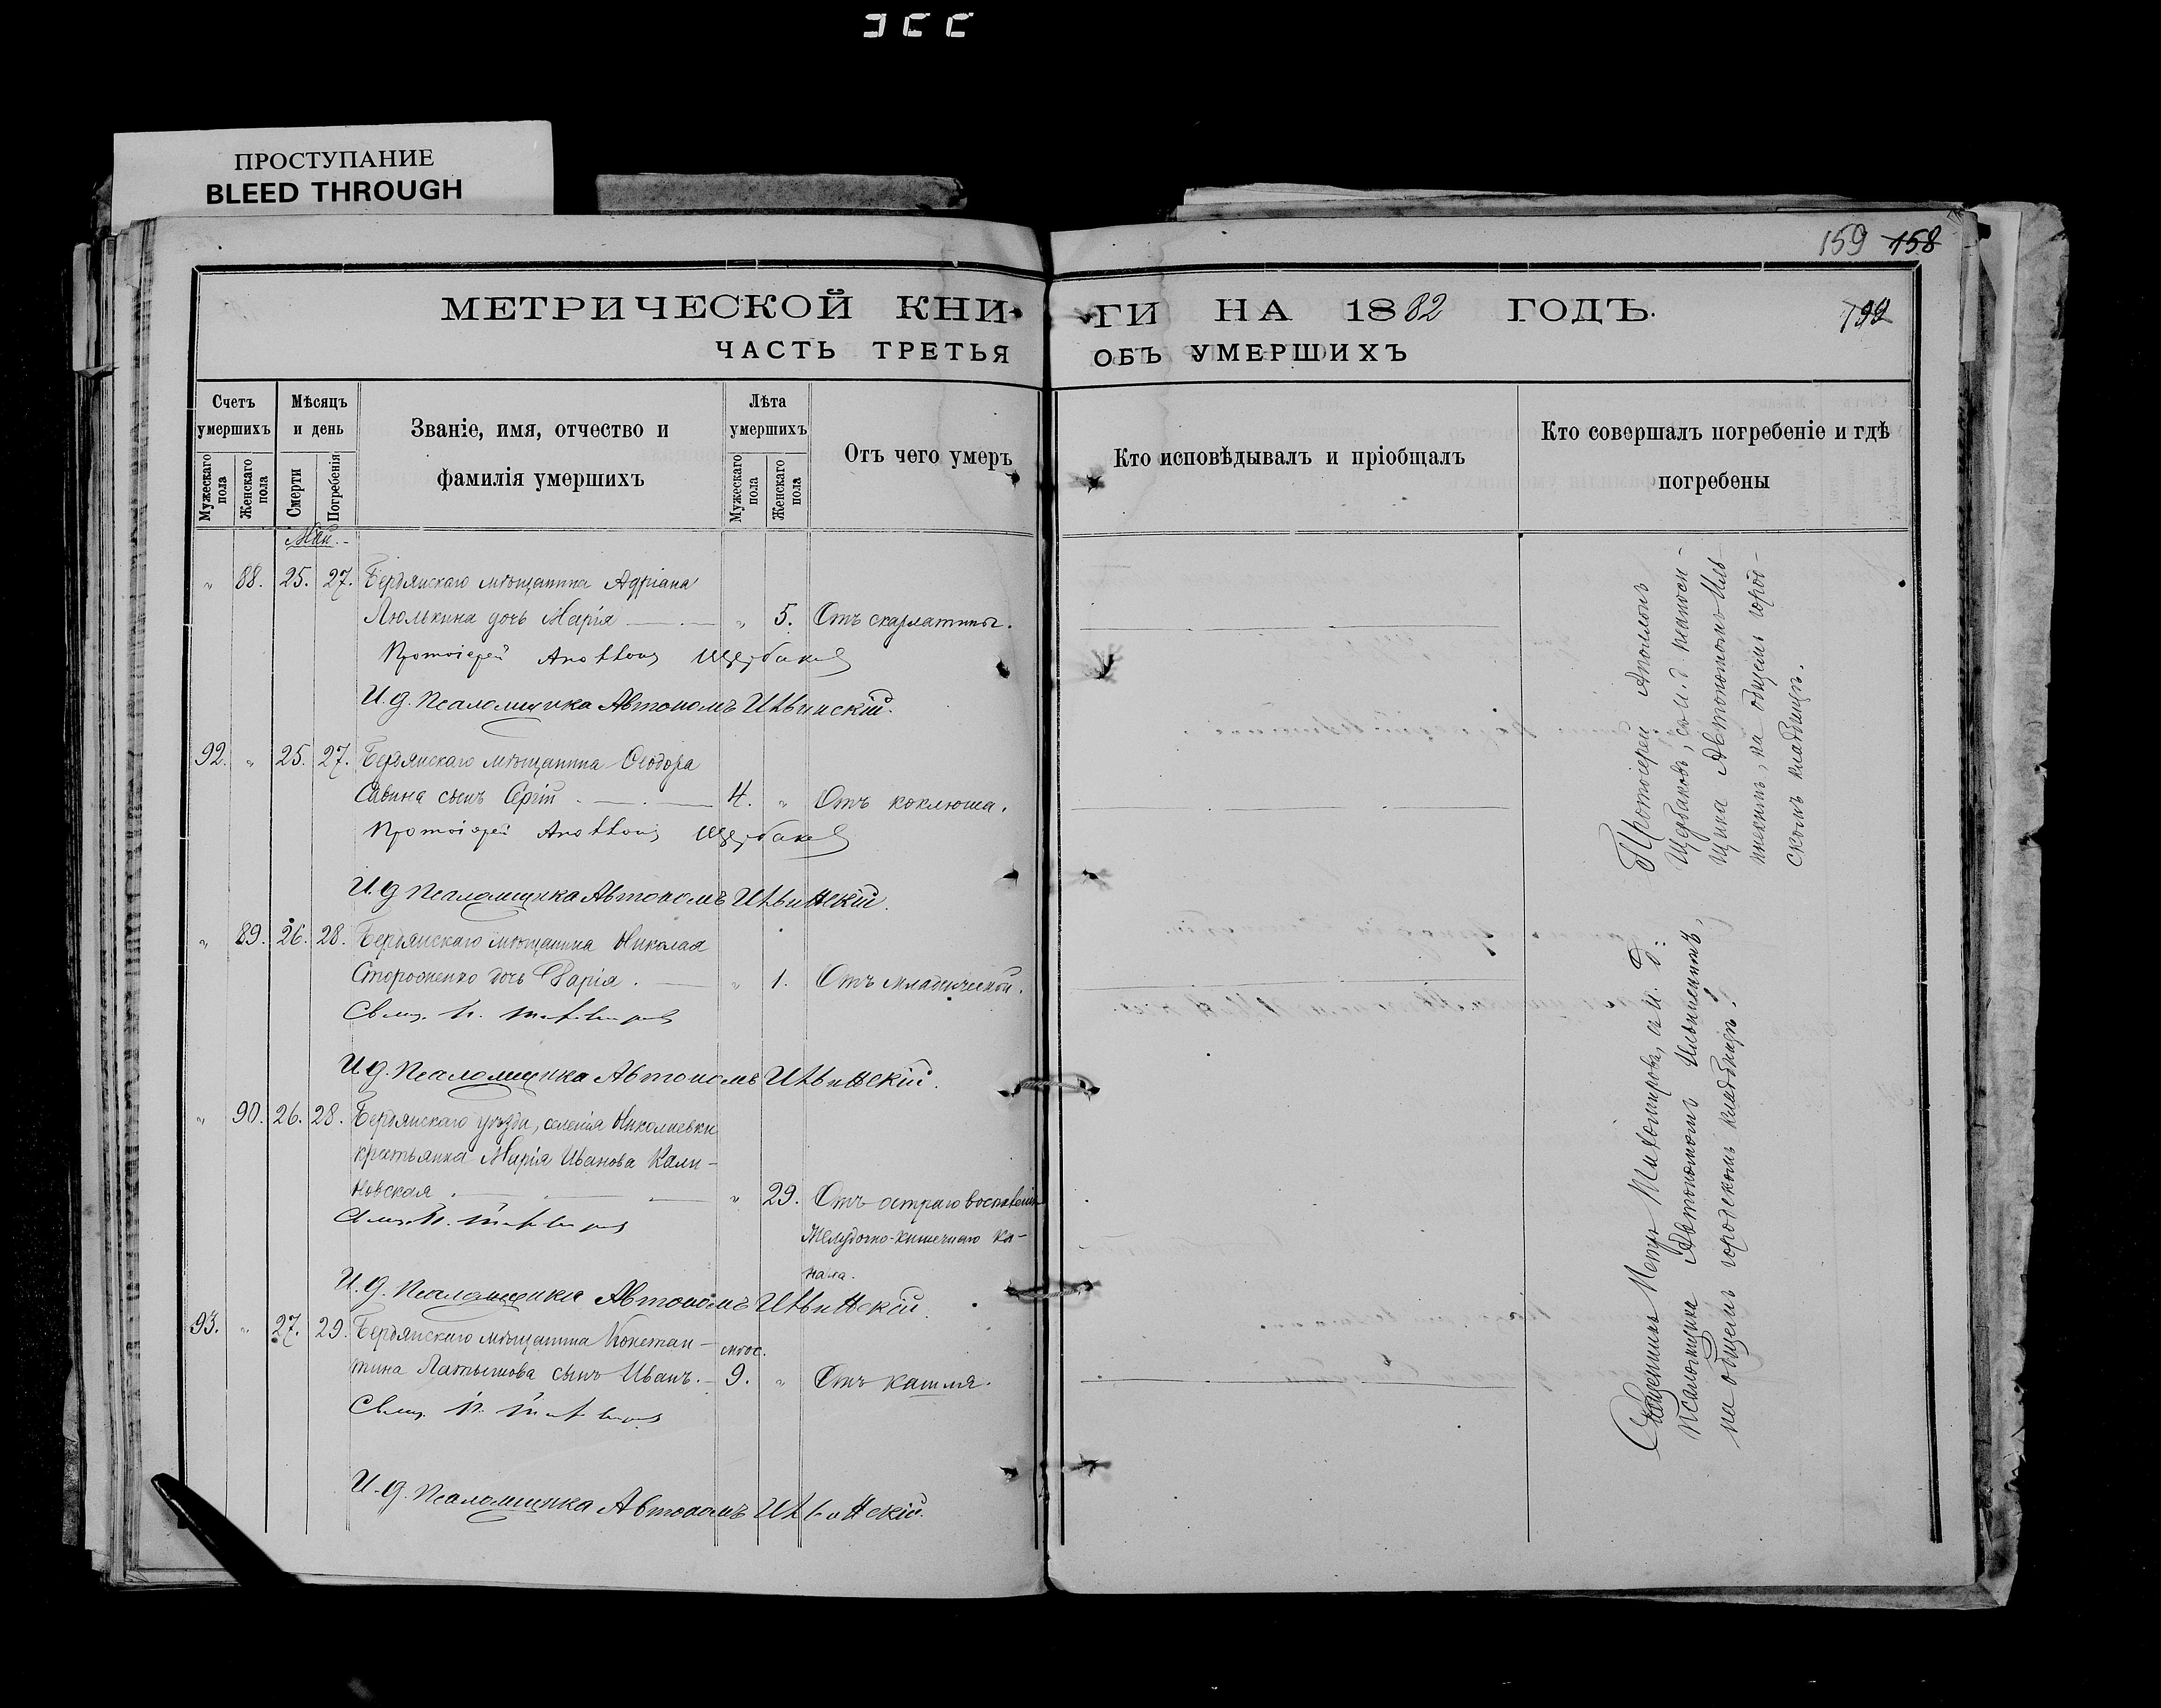 ПРОСТУПАНИЕ
BLEED THROUGH
159 158
МЕТРИЧЕСКОЙ КНИ-
ЧАСТЬ ТРЕТЬЯ
Счетъ
умершихъ
Мужескаго
пола
Женскаго
пола
Мѣсяцъ
и день
Смерти
Погребенія
Званіе, имя, отчество и
фамилія умершихъ
Лѣта
умершихъ
Мужескаго
пола
Женскаго
пола
Отъ чего умеръ
Май.
„ 88. 25. 27. Бердянскаго мѣщанина Адріана
Люлькина дочь Марія „ 5. Отъ скарлатины.
Протоіерей Аполлонъ Щербаковъ
И. д. Псаломщика Автономъ Ильинскій.
92. „ 25. 27. Бердянскаго мѣщанина Ѳеодора
Савина сынъ Сергій 4. „ Отъ коклюша.
Протоіерей Аполлонъ Щербаковъ
И. д. Псаломщика Автономъ Ильинскій.
„ 89. 26. 28. Бердянскаго мѣщанина Николая
Стороженко дочь Дарія. „ 1. Отъ младенческой.
Свящ. П. Тихомировъ
И. д. Псаломщика Автономъ Ильинскій.
„ 90. 26. 28. Бердянскаго уѣзда, селенія Николаевки
крестьянка Марія Иванова Кали-
новская. „ 29. Отъ остраго воспаленія
желудочно-кишечнаго ка-
нала.
Свящ. П. Тихомировъ
И. д. Псаломщика Автономъ Ильинскій.
93. „ 27. 29. Бердянскаго мѣщанина Констан-
тина Латышова сынъ Иванъ. мѣс. 9. „ Отъ кашля.
Свящ. П. Тихомировъ
И. д. Псаломщика Автономъ Ильинскій.
ГИ НА 1882 ГОДЪ.
ОБЪ УМЕРШИХЪ
Кто исповѣдывалъ и пріобщалъ
Кто совершалъ погребеніе и гдѣ
погребены
Протоіерей Аполлонъ
Щербаковъ, съ и. д. псаломщи-
щика Автономомъ Иль-
инскимъ, на общемъ город-
скомъ кладбищѣ.
Священникъ Петръ Тихомировъ, съ и. д.
псаломщика Автономомъ Ильинскимъ,
на общемъ городскомъ кладбищѣ.